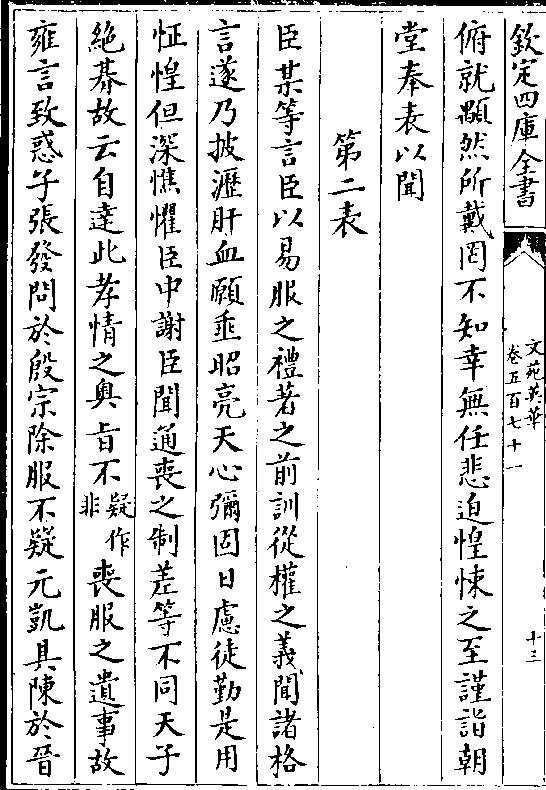 欽定四庫全書
文苑英華
卷五百七十一
十三
俯就顒然所戴罔不知幸無任悲迫惶悚之至謹詣朝
堂奉表以聞
第二表
臣某等言臣以易服之禮著之前訓從權之義聞諸格
言遂乃披瀝肝血願垂昭亮天心彌固日慮徒勤是用
怔惶但深憔懼臣中謝臣聞通喪之制差等不同天子
絶朞故云自達此孝情之奥旨不疑作非喪服之遺事故
雍言致惑子張發問於殷宗除服不疑元凱具陳於晉